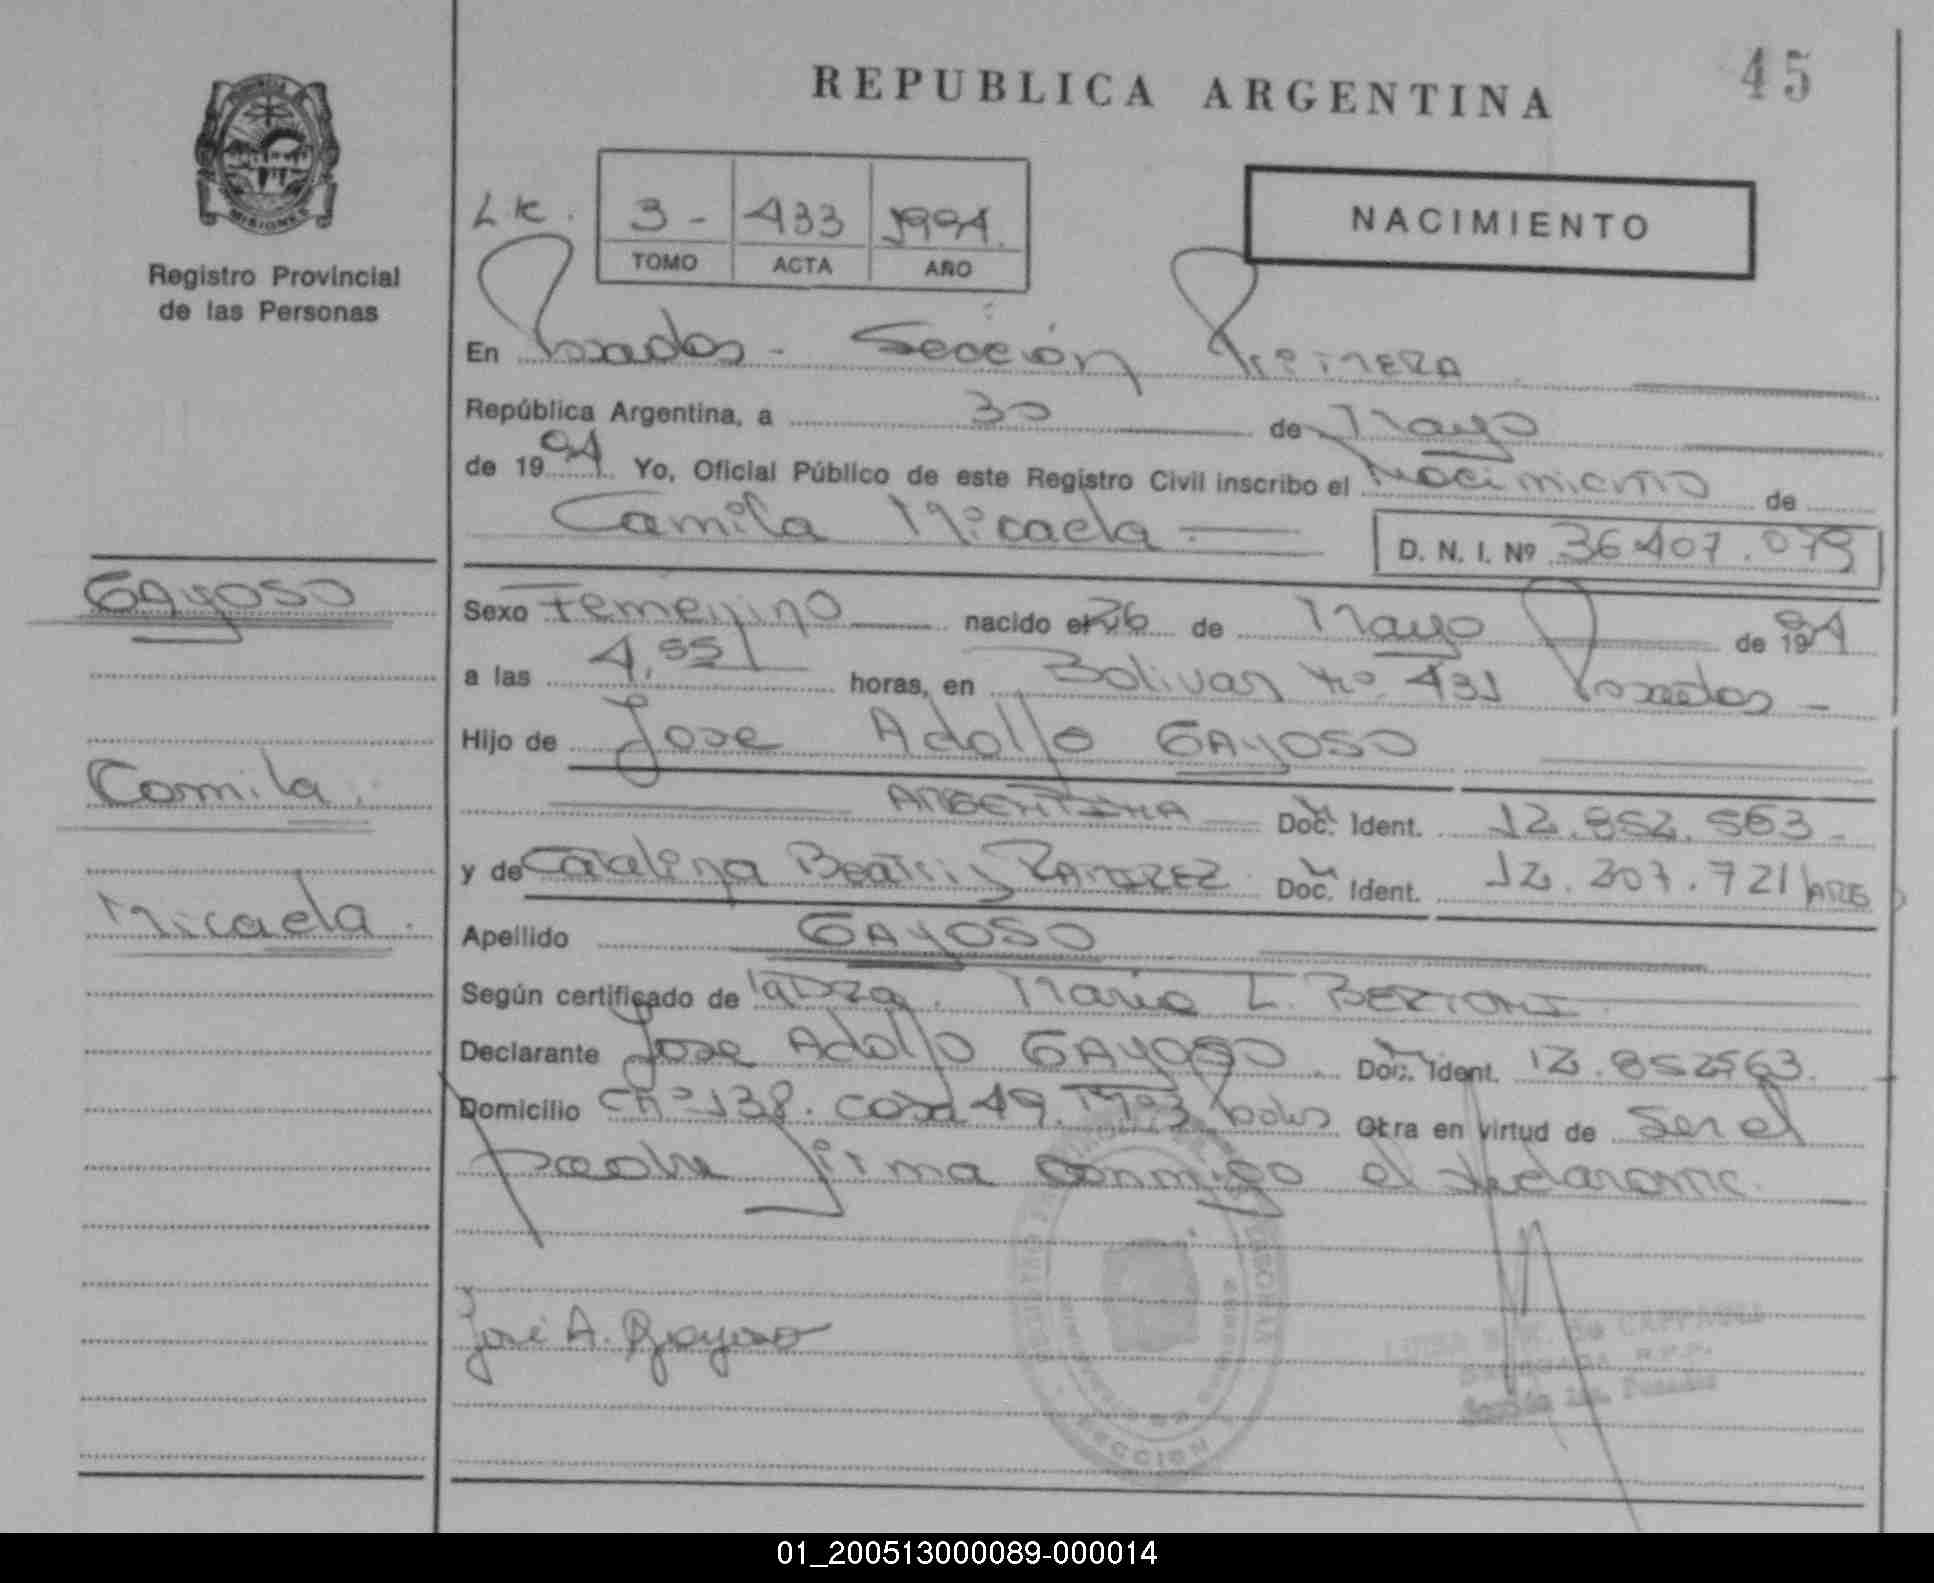 REPUBLICA ARGENTINA
45
MISIONES
Registro Provincial
de las Personas
3 - 433 1994.
TOMO ACTA AÑO
NACIMIENTO
En Posadas - Sección Primera
República Argentina, a 30 de Mayo
de 1994 Yo, Oficial Público de este Registro Civil inscribo el Nacimiento de
Camila Micaela
D. N. I. Nº 36.407.079
GAYOSO
Camila
Micaela.
Sexo Femenino nacido el 26 de Mayo de 1994
a las 4,55 horas, en Bolivar Nº 431 Posadas -
Hijo de Jose Adolfo GAYOSO
ARGENTINA Doc. Ident. 12.852.563
y de Catalina Beatriz RAMIREZ Doc. Ident. 12.207.721 ARG
Apellido GAYOSO
Según certificado de la Dra. Maria L. BERTONI
Declarante Jose Adolfo GAYOSO. Doc. Ident. 12.852563.
Domicilio CHº 138. casa 49. Pdas Obra en virtud de ser el
padre firma conmigo el declarante.
José A. Gayoso
de CAPPAGLI
R.P.P.
Sección 1ra. Posadas
SECCION
01_200513000089-000014